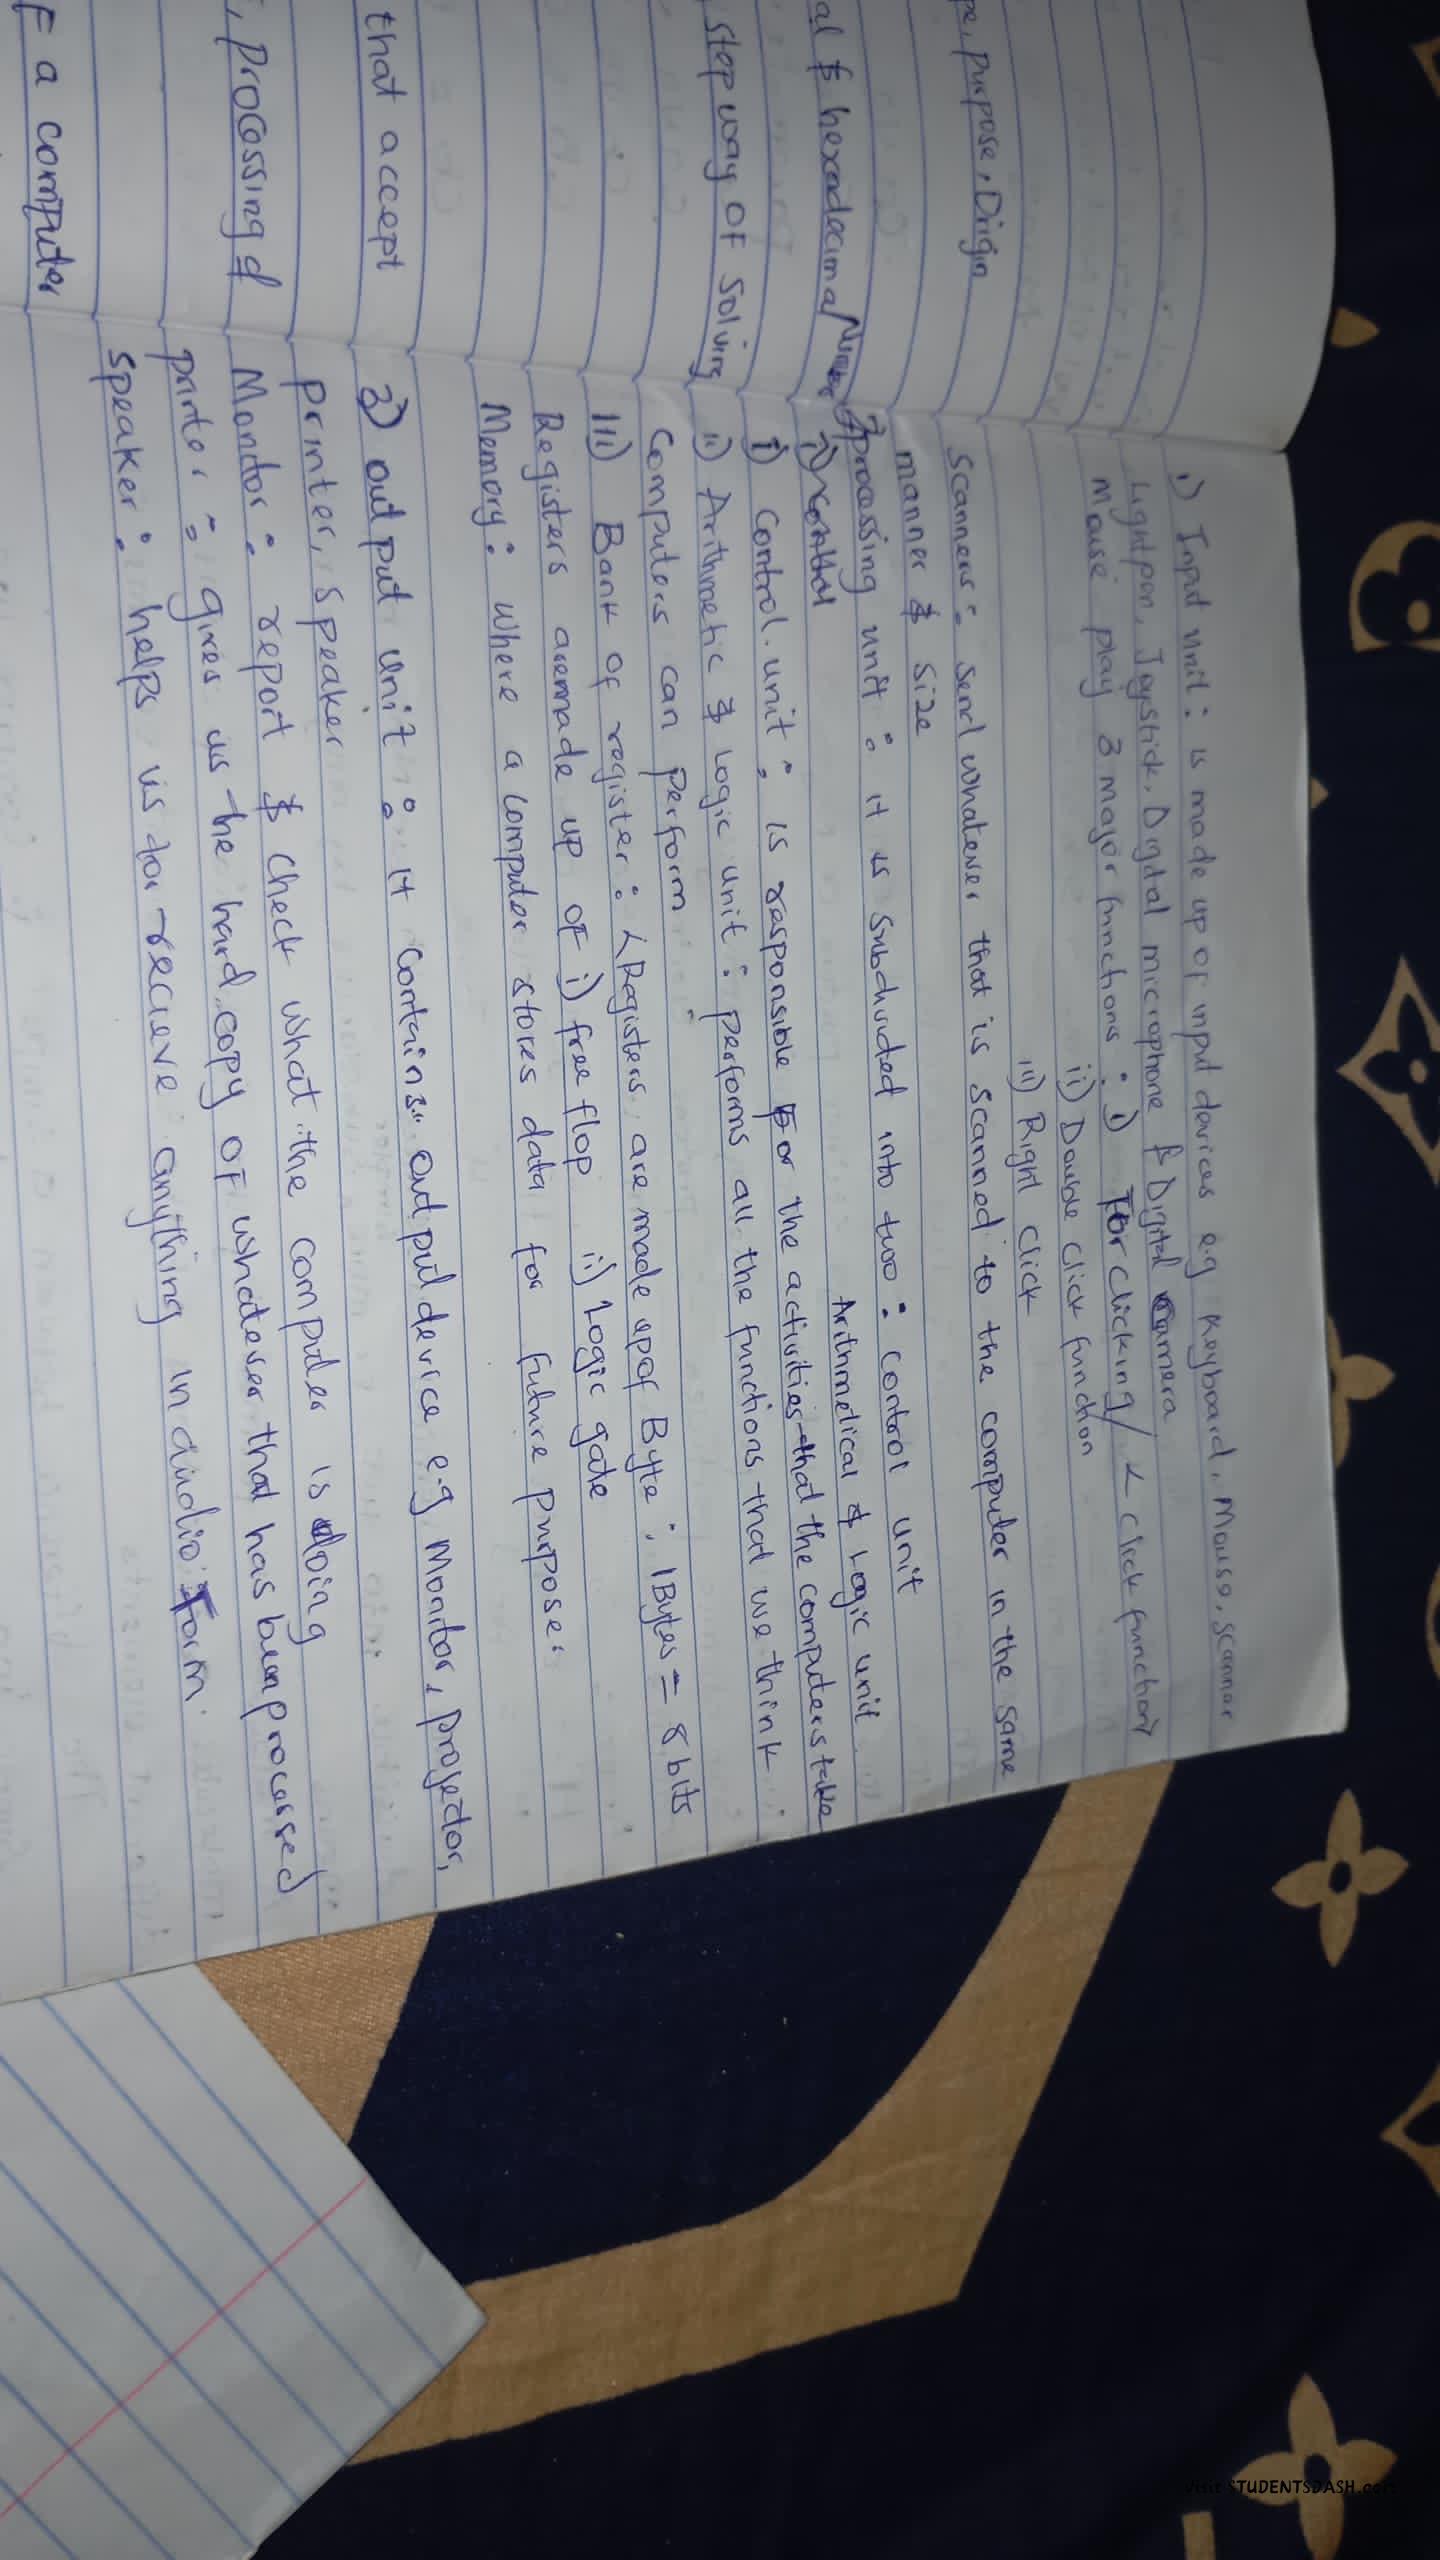 pe, purpose, Origin
al $ hexadecimal Number
, step way OF Solving
that accept
, processing &
F a computer
1) Input unit: is made up of input devices e.g Keyboard, Mouse, scanner
Lightpen, Joystick, Digital microphone & Digital camera
Mouse play 3 major functions: i) For clicking / L click function
ii) Double click function
iii) Right click
Scanners: Send whatever that is scanned to the computer in the same
manner $ size
2) processing unit: it is subdivided into two: control unit
Arithmetical $ Logic unit
i) Control
i) Control unit: is responsible for the activities that the computers take
ii) Arithmetic $ Logic unit: performs all the functions that we think
Computers can perform
iii) Bank of register: < Registers are made up of Byte: 1Bytes = 8 bits
Registers aremade up OF i) free flop ii) Logic gate
Memory: where a computer stores data for future purpose:
3) output unit: it contains output device e.g Monitor, projector,
printer, speaker
Monitor: report $ check what the computer is doing
printer: gives us the hard copy OF whatever that has been processed
speaker: helps us to recieve anything in audio Form.
Visit STUDENTSDASH.com